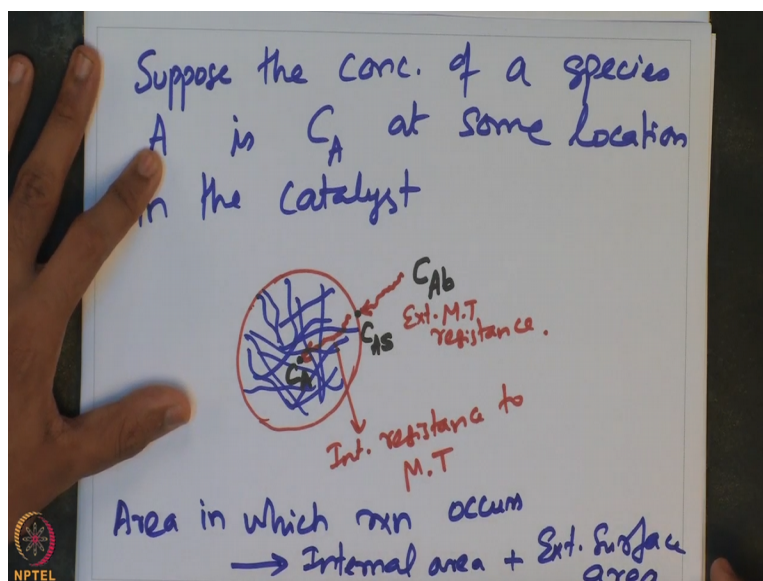 Suppose the conc. of a species
A is CA at some location
in the catalyst
CAb
Ext. M.T
resistance.
CAS
CA
Int. resistance to
M.T
Area in which rxn occurs
→ Internal area + Ext. Surface
area
NPTEL